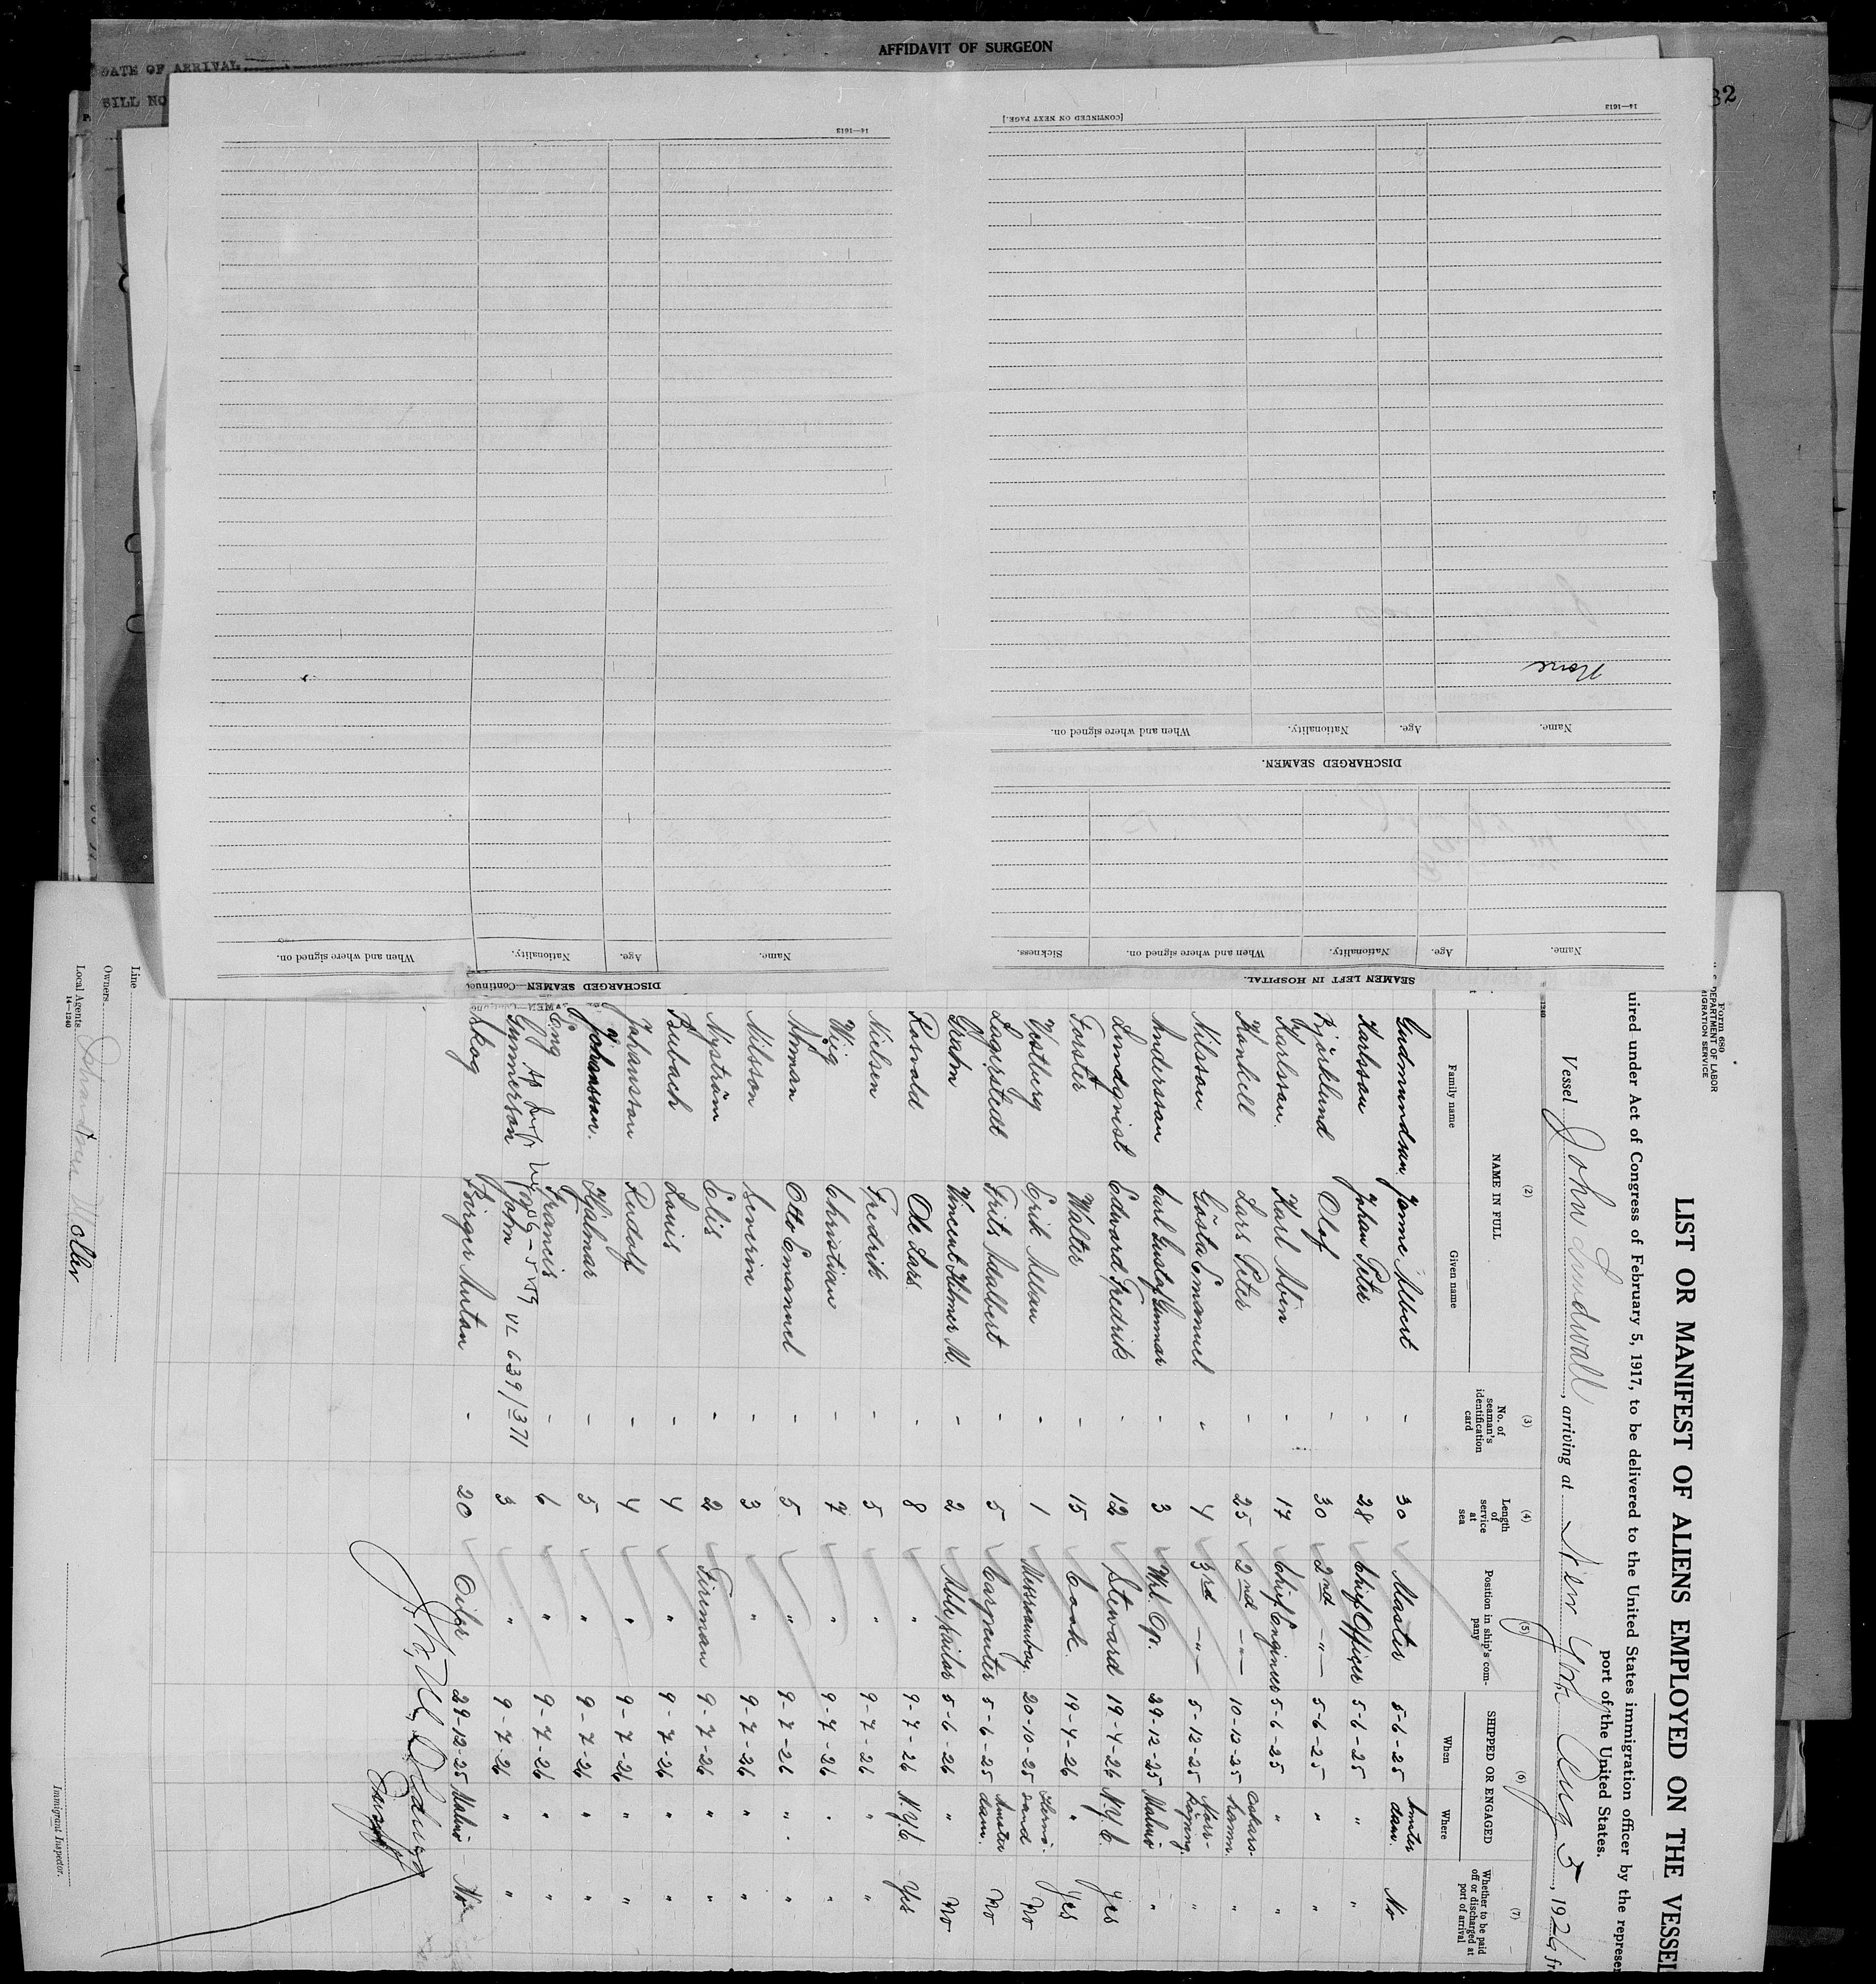 AFFIDAVIT OF SURGEON
DATE OF ARRIVAL
BILL NO
32
14—1613
[CONTINUED ON NEXT PAGE.]
None
Name. Age. Nationality. When and where signed on.
DISCHARGED SEAMEN.
Name. Age. Nationality. When and where signed on. Sickness.
SEAMEN LEFT IN HOSPITAL.
14—1613
Name. Age. Nationality. When and where signed on.
DISCHARGED SEAMEN—Continued
Form 680
DEPARTMENT OF LABOR
MIGRATION SERVICE
LIST OR MANIFEST OF ALIENS EMPLOYED ON THE VESSEL
uired under Act of Congress of February 5, 1917, to be delivered to the United States immigration officer by the represen
port of the United States.
Vessel John Lundwall, arriving at New York Aug 5, 1926 fr
(2) (3) (4) (5) (6) (7)
NAME IN FULL No. of seaman's identification card Length of service at sea Position in ship's company SHIPPED OR ENGAGED Whether to be paid off or discharged at port of arrival
Family name Given name When Where
Gudmundson Janne Albert - 30 Master 5-6-25 Amster dam. No
Karlsson Johan Peter - 28 Chief Officer 5-6-25 " "
Björklund Olof - 30 2nd —"— 5-6-25 " "
Karlsson. Karl Albin - 17 Chief Engineer 5-6-25 " "
Kanhell Lars Peter - 25 2nd —"— 10-12-25 Oskars- hamn. "
Nilsson Gösta Emanuel " 4 3rd —"— 5-12-25 Norr- köping. "
Andersson Carl Gustaf Gunnar - 3 Wrl. Op. 29-12-25 Malmö "
Lundqvist Edward Fredrik - 12 Steward 19-4-26 N.Y.C. Yes
Forster Walter - 15 Cook. 19-4-26 " Yes
Vestberg Erik Allan - 1 Messroomboy. 20-10-25 Hernö- sand No
Lagerstedt Frits Adalbert - 5 Carpenter 5-6-25 Amster dam. No
Grahn Vincent Hilmer M. - 2 Able Sailor 5-6-26 " No
Rosvold Ole Lars - 8 " 9-7-26 N.Y.C. Yes
Nielsen Fredrik - 5 " 9-7-26 " "
Wiig Christian - 7 " 9-7-26 " "
Åhman Otto Emanuel - 5 " 9-7-26 " "
Nilsson Severin - 3 " 9-7-26 " "
Nyström Elis - 2 Fireman 9-7-26 " "
Bubach Louis - 4 " 9-7-26 " "
Johansson Rudolf - 4 " 9-7-26 " "
Johansson. Hjalmar - 5 " 9-7-26 " "
Eng Francis - 6 " 9-7-26 " "
VL 639/371
Gunnerson John 3 " 9-7-26 " "
Skog Birger Anton - 20 Oiler 29-12-25 Malmö No
Line
Owners
Local Agents
14—1240
Immigrant Inspector.